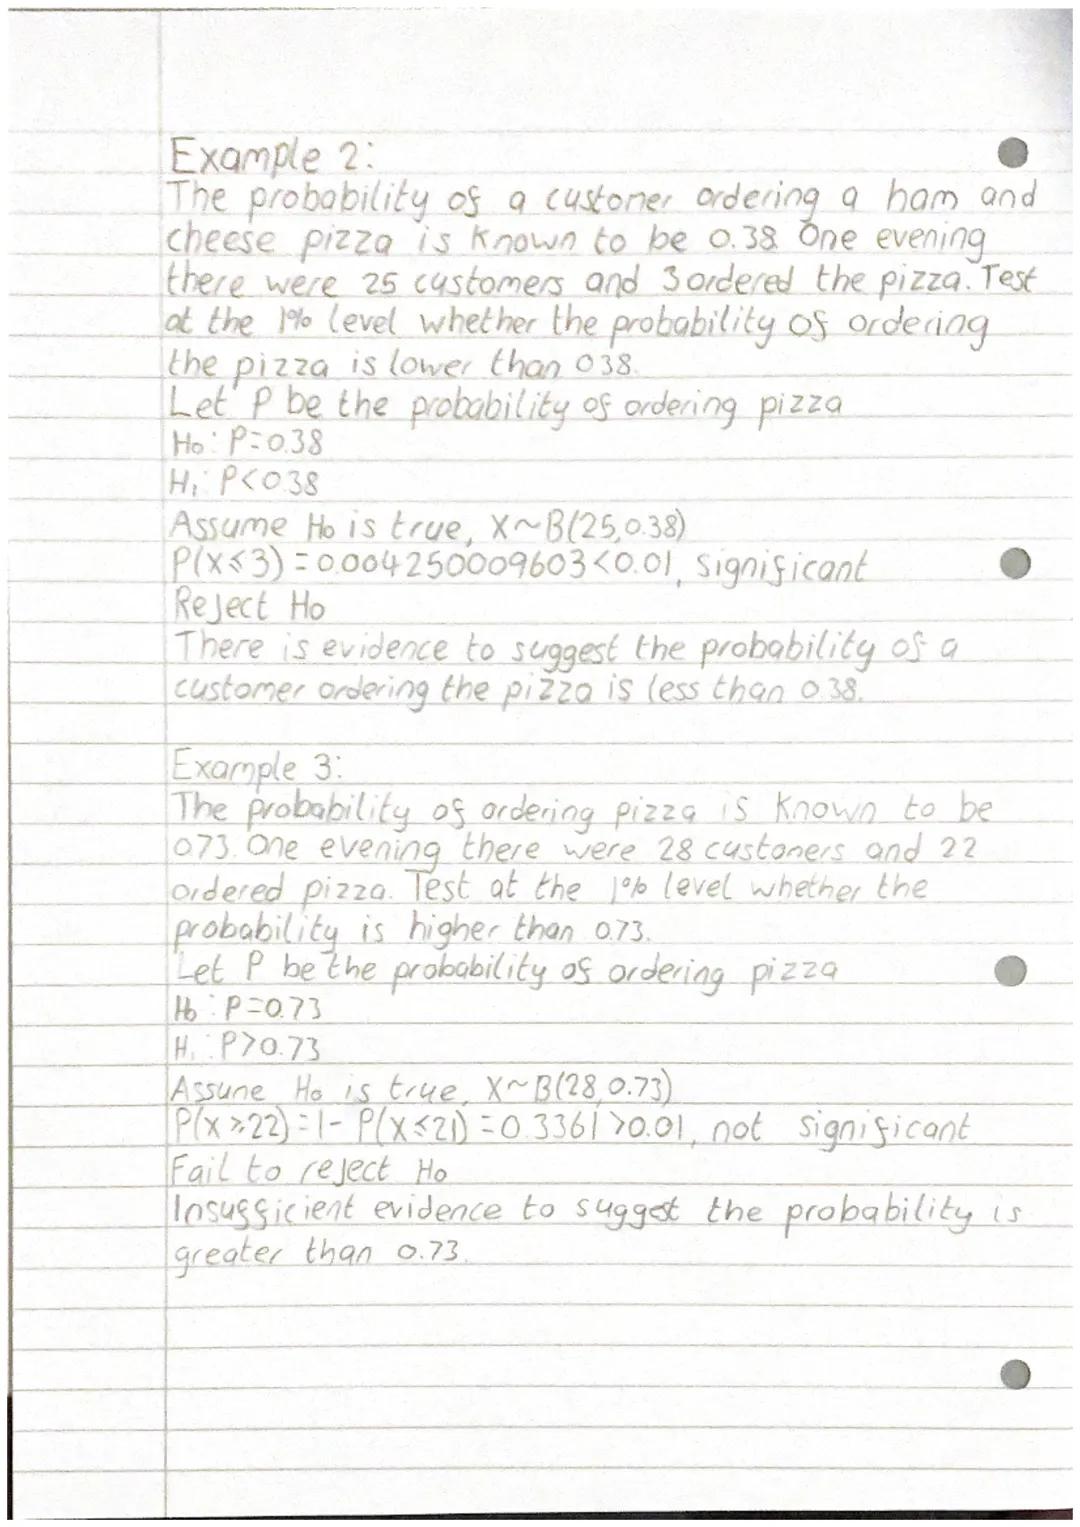 Example 2:
The probability of a customer ordering a ham and
cheese pizza is known to be 0.38. One evening
there were 25 customers and 3 ordered the pizza. Test
at the 1% level whether the probability of ordering
the pizza is lower than 0.38.
Let P be the probability of ordering pizza
H₀: P=0.38
H₁: P<0.38
Assume H₀ is true, X~B(25,0.38)
P(X≤3) = 0.004250009603<0.01, significant
Reject H₀
There is evidence to suggest the probability of a
customer ordering the pizza is less than 0.38.
Example 3:
The probability of ordering pizza is known to be
0.73. One evening there were 28 customers and 22
ordered pizza. Test at the 1% level whether the
probability is higher than 0.73.
Let P be the probability of ordering pizza
H₀: P=0.73
H₁: P>0.73
Assume H₀ is true, X~B(28,0.73)
P(X≥22)=1-P(X≤21)=0.3361>0.01, not significant
Fail to reject H₀
Insufficient evidence to suggest the probability is
greater than 0.73.